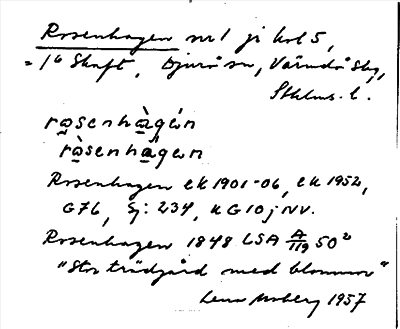 Rosenhagen nr 1 ji kol 5,
= 1/6 Skaft, Djurö sn, Värmdö skg,
Sthlms. l.
rɷsenhàgén
rɷ̀senhágen
Rosenhagen ek 1901-06, ek 1952,
G76, Sj: 234, kG 10 j NV.
Rosenhagen 1848 LSA A/119 50²
"Stor trädgård med blommor"
Lena Moberg 1957